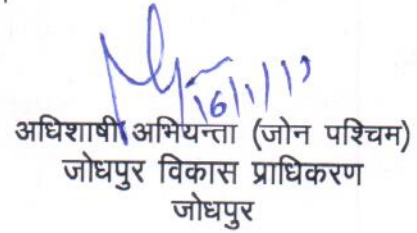 16/1/13
अधिशाषी अभियन्ता (जोन पश्चिम)
जोधपुर विकास प्राधिकरण
जोधपुर